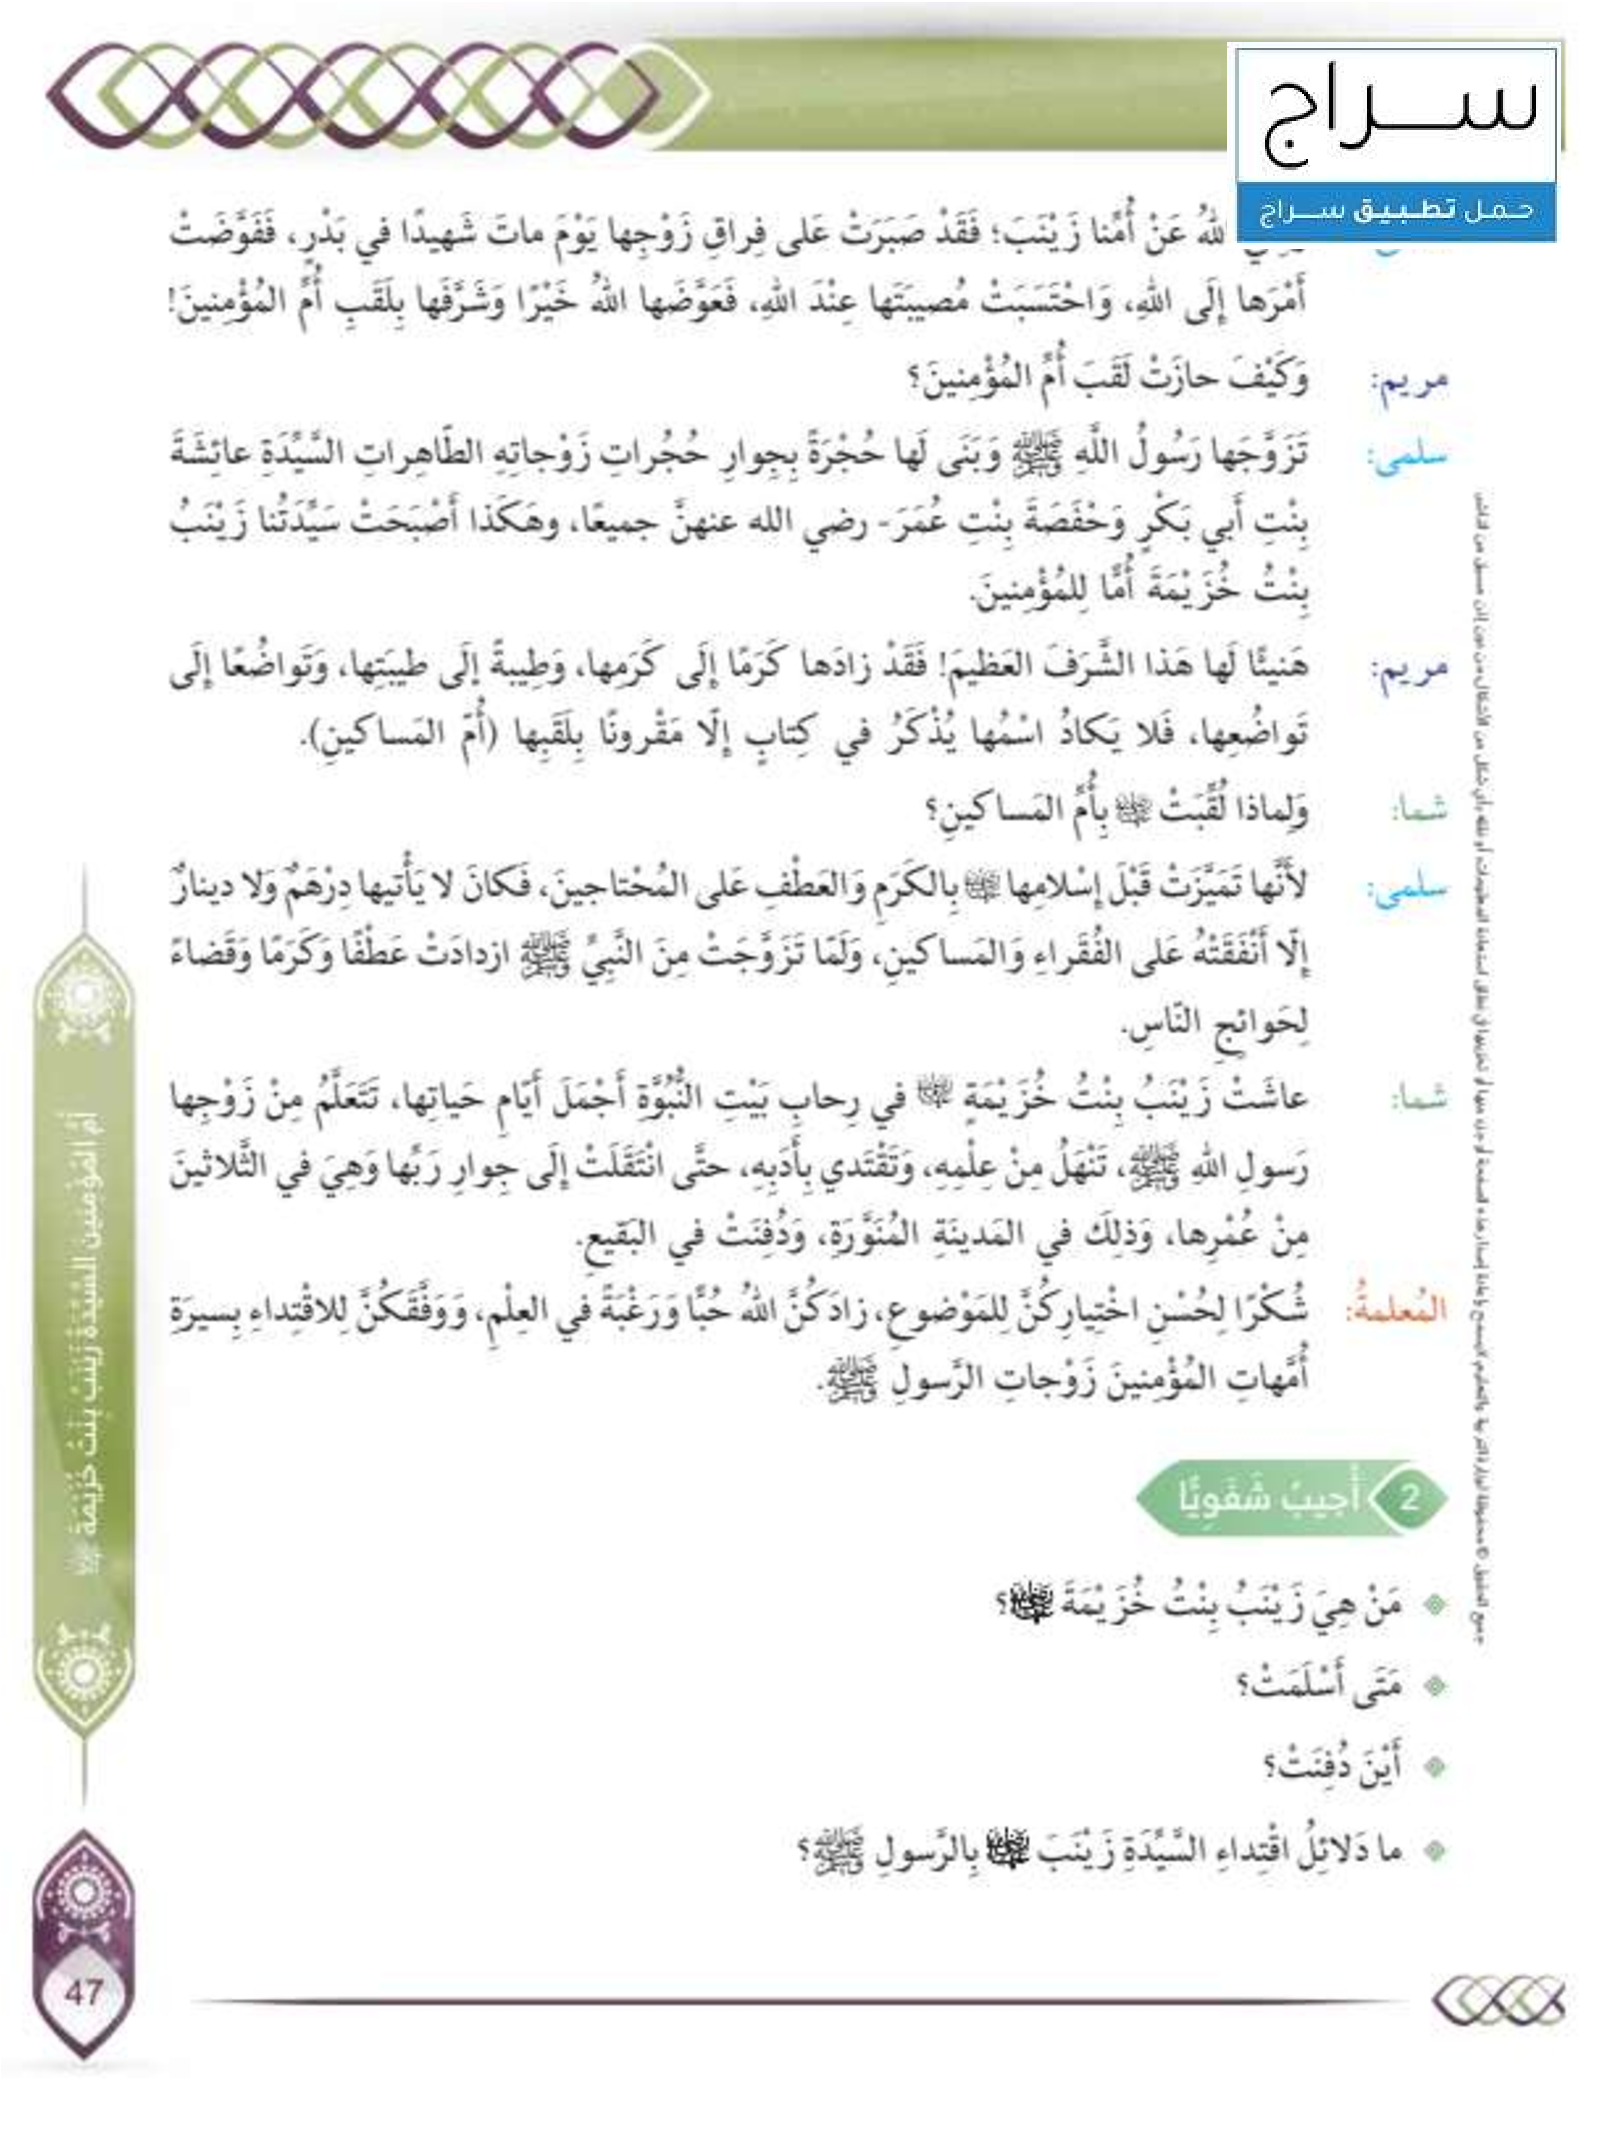 سراج
حمل تطبيق سراج
اللهُ عَنْ أُمِّنا زَيْنَبَ؛ فَقَدْ صَبَرَتْ عَلى فِراقِ زَوْجِها يَوْمَ ماتَ شَهيدًا في بَدْرٍ، فَفَوَّضَتْ
أَمْرَها إِلَى اللهِ، وَاحْتَسَبَتْ مُصيبَتَها عِنْدَ اللهِ، فَعَوَّضَها اللهُ خَيْرًا وَشَرَّفَها بِلَقَبِ أُمِّ المُؤْمِنينَ!
مريم: وَكَيْفَ حازَتْ لَقَبَ أُمِّ المُؤْمِنينَ؟
سلمى: تَزَوَّجَها رَسُولُ اللَّهِ ﷺ وَبَنَى لَها حُجْرَةً بِجِوارِ حُجُراتِ زَوْجاتِهِ الطّاهِراتِ السَّيِّدَةِ عائِشَةَ
بِنْتِ أَبي بَكْرٍ وَحَفْصَةَ بِنْتِ عُمَرَ- رضي الله عنهنَّ جميعًا، وهَكَذا أَصْبَحَتْ سَيِّدَتُنا زَيْنَبُ
بِنْتُ خُزَيْمَةَ أُمًّا لِلمُؤْمِنينَ.
مريم: هَنيئًا لَها هَذا الشَّرَفَ العَظيمَ! فَقَدْ زادَها كَرَمًا إِلَى كَرَمِها، وَطِيبةً إِلَى طيبَتِها، وَتَواضُعًا إِلَى
تَواضُعِها، فَلا يَكادُ اسْمُها يُذْكَرُ في كِتابٍ إِلّا مَقْرونًا بِلَقَبِها (أُمّ المَساكينِ).
شما: وَلِماذا لُقِّبَتْ رضي الله عنها بِأُمِّ المَساكينِ؟
سلمى: لأَنَّها تَمَيَّزَتْ قَبْلَ إِسْلامِها رضي الله عنها بِالكَرَمِ وَالعَطْفِ عَلى المُحْتاجينَ، فَكانَ لا يَأْتيها دِرْهَمٌ وَلا دينارٌ
إِلّا أَنْفَقَتْهُ عَلى الفُقَراءِ وَالمَساكينِ، وَلَمّا تَزَوَّجَتْ مِنَ النَّبِيِّ ﷺ ازدادَتْ عَطْفًا وَكَرَمًا وَقَضاءً
لِحَوائِجِ النّاسِ.
شما: عاشَتْ زَيْنَبُ بِنْتُ خُزَيْمَةٍ رضي الله عنها في رِحابِ بَيْتِ النُّبُوَّةِ أَجْمَلَ أَيّامِ حَياتِها، تَتَعَلَّمُ مِنْ زَوْجِها
رَسولِ اللهِ ﷺ، تَنْهَلُ مِنْ عِلْمِهِ، وَتَقْتَدي بِأَدَبِهِ، حتَّى انْتَقَلَتْ إِلَى جِوارِ رَبِّها وَهِيَ في الثَّلاثينَ
مِنْ عُمْرِها، وَذلِكَ في المَدينَةِ المُنَوَّرَةِ، وَدُفِنَتْ في البَقيعِ.
المُعلمةُ: شُكْرًا لِحُسْنِ اخْتِيارِكُنَّ لِلمَوْضوعِ، زادَكُنَّ اللهُ حُبًّا وَرَغْبَةً في العِلْمِ، وَوَفَّقَكُنَّ لِلاقْتِداءِ بِسيرَةِ
أُمَّهاتِ المُؤْمِنينَ زَوْجاتِ الرَّسولِ ﷺ.
2 أُجيبُ شَفَوِيًّا
مَنْ هِيَ زَيْنَبُ بِنْتُ خُزَيْمَةَ رضي الله عنها؟
مَتَى أَسْلَمَتْ؟
أَيْنَ دُفِنَتْ؟
ما دَلائِلُ اقْتِداءِ السَّيِّدَةِ زَيْنَبَ رضي الله عنها بِالرَّسولِ ﷺ؟
أُمُّ المُؤْمِنين السَّيِّدَةُ زَيْنَبُ بِنْتُ خُزَيْمَةَ رضي الله عنها
47